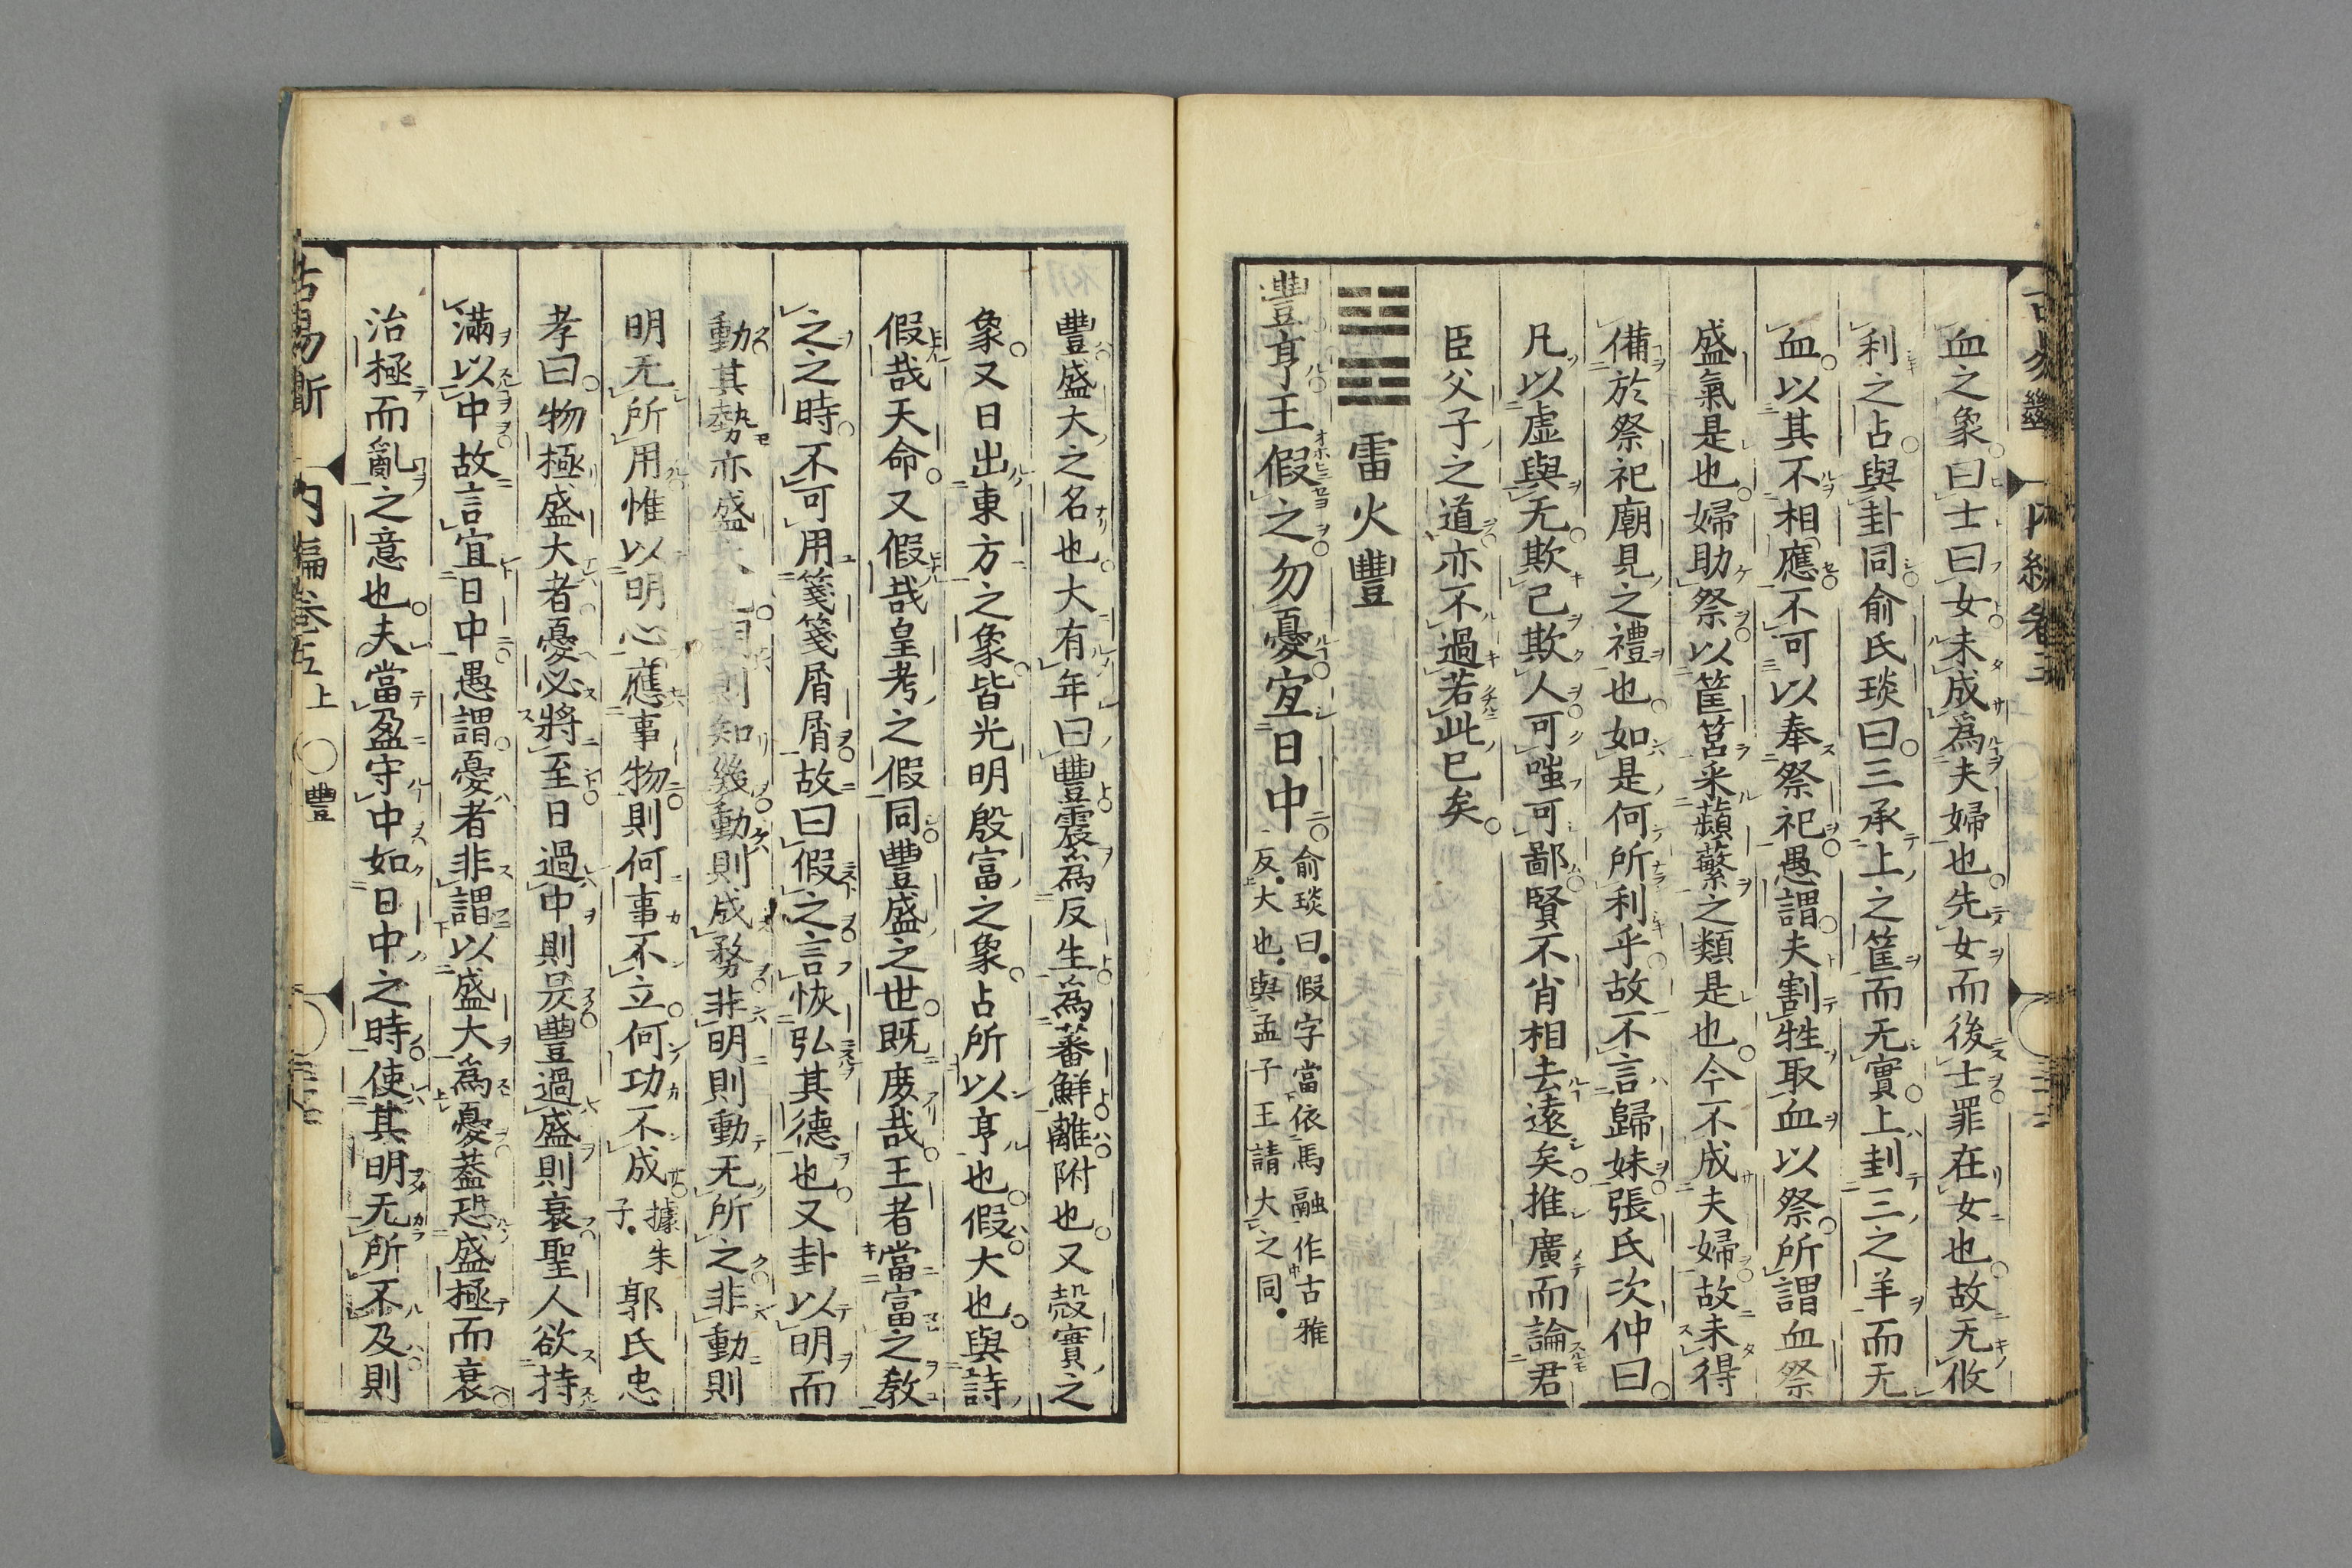 血之象曰士曰女未成爲夫婦也先女而後士罪在女也故无攸
利之占與卦同俞氏琰曰三承上之筐而无實上刲三之羊而无
血以其不相應不可以奉祭祀愚謂夫割牲取血以祭所謂血祭
盛氣是也婦助祭以筐筥采蘋蘩之類是也今不成夫婦故未得
備於祭祀廟見之禮也如是何所利乎故不言歸妹張氏次仲曰
凡以虛與无欺己欺人可嗤可鄙賢不肖相去遠矣推廣而論君
臣父子之道亦不過若此已矣
雷火豐
豐亨王假之勿憂宜日中
俞琰曰假字當依馬融作古雅
反大也與孟子王請大之同
豐盛大之名也大有年曰豐震為反生為蕃鮮離附也又穀實之
象又日出東方之象皆光明殷富之象占所以亨也假大也與詩
假哉天命又假哉皇考之假同豐盛之世既庶哉王者當富之教
之之時不可用箋箋屑屑故曰假之言恢弘其德也又卦以明而
動其勢亦盛則知幾動則成務非明則動无所之非動則
明无所用惟以明心應事物則何事不立何功不成
據朱
子
郭氏忠
孝曰物極盛大者憂必將至日過中則昃豐過盛則衰聖人欲持
滿以中故言宜日中愚謂憂者非謂以盛大爲憂蓋恐盛極而衰
治極而亂之意也夫當盈守中如日中之時使其明无所不及則
古易斷 内編卷五上 豐